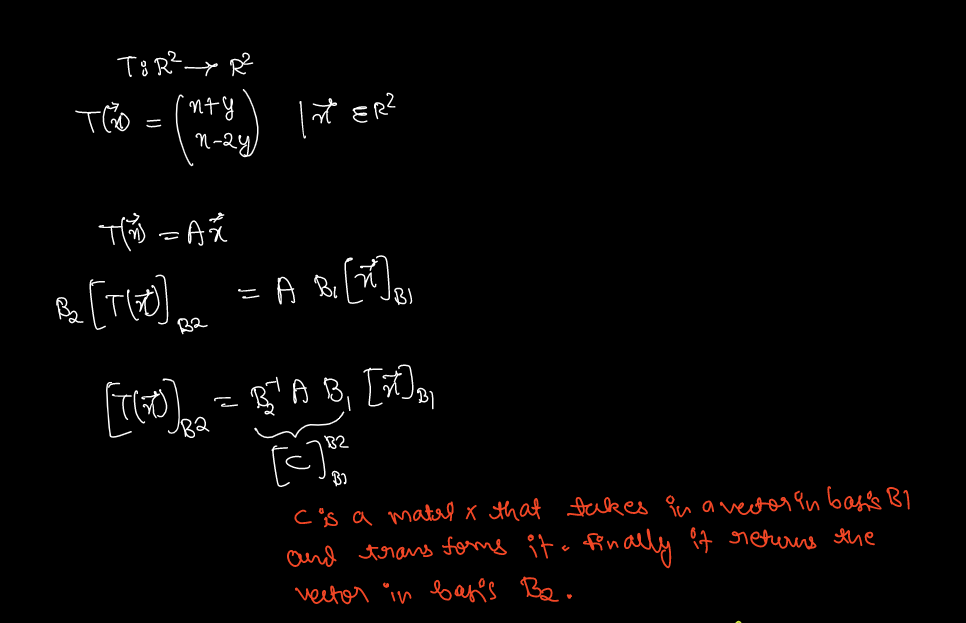 T: R² → R²
T(x⃗) = (x+y
x-2y) | x⃗ ∈ R²
T(x⃗) = A x⃗
B₂ [T(x⃗)]_B2 = A B₁ [x⃗]_B1
[T(x⃗)]_B2 = B₂⁻¹ A B₁ [x⃗]_B1
[C]_B1^B2
C is a matrix that takes in a vector in basis B1
and transforms it. finally it returns the
vector in basis B₂.